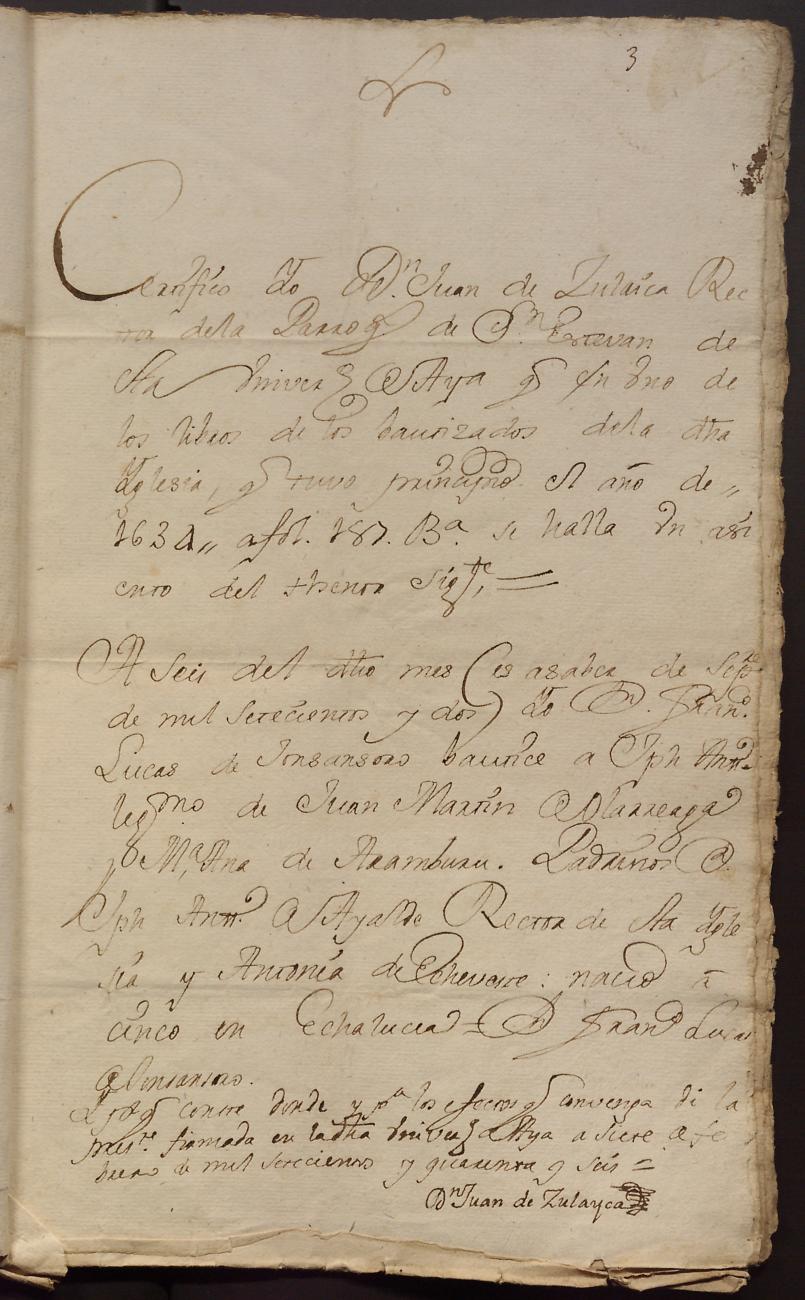 3
Certifico Yo Dn. Juan de Zulaica Rec
tor dela Parroq de Sn. Estevan de
sta Univerd de Aya q en Uno de
los libros de los bautizados dela dha
Yglesia, q tuvo principio el año de,,
1634,, a fol. 187. Ba. se halla Un asi
ento del thenor Sigte, =
A seis del dho mes (es asaber de Sepe
de mil setecientos y dos) Yo Dn. Frano.
Lucas de Insansoro bautice a Jph Anto.
legmo de Juan Martin de Olarreaga
y Ma, Ana de Aramburu. Padrinos Dn.
Jph Anto. de Ayalde Rector de sta Ygle
sia y Antonia de Echeveste: nacio a
cinco en Echalucea = Dn Frano Lucas
de Insansoro.
Y pa q conste donde y pa los efectos q convenga di la
preste. firmada en la dha Univerd de Aya a siete de fe
brero de mil setecientos y quarenta y seis =
Dn Juan de Zulayca